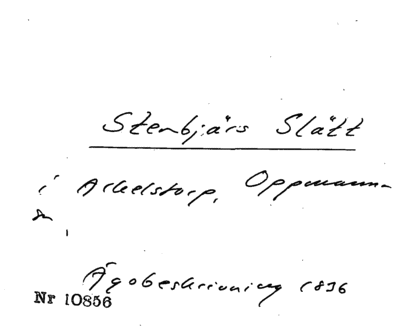 Stenbjärs Slätt
i Arkelstorp, Oppmanna-
sn,
Ägobeskrivning 1896
Nr 10856